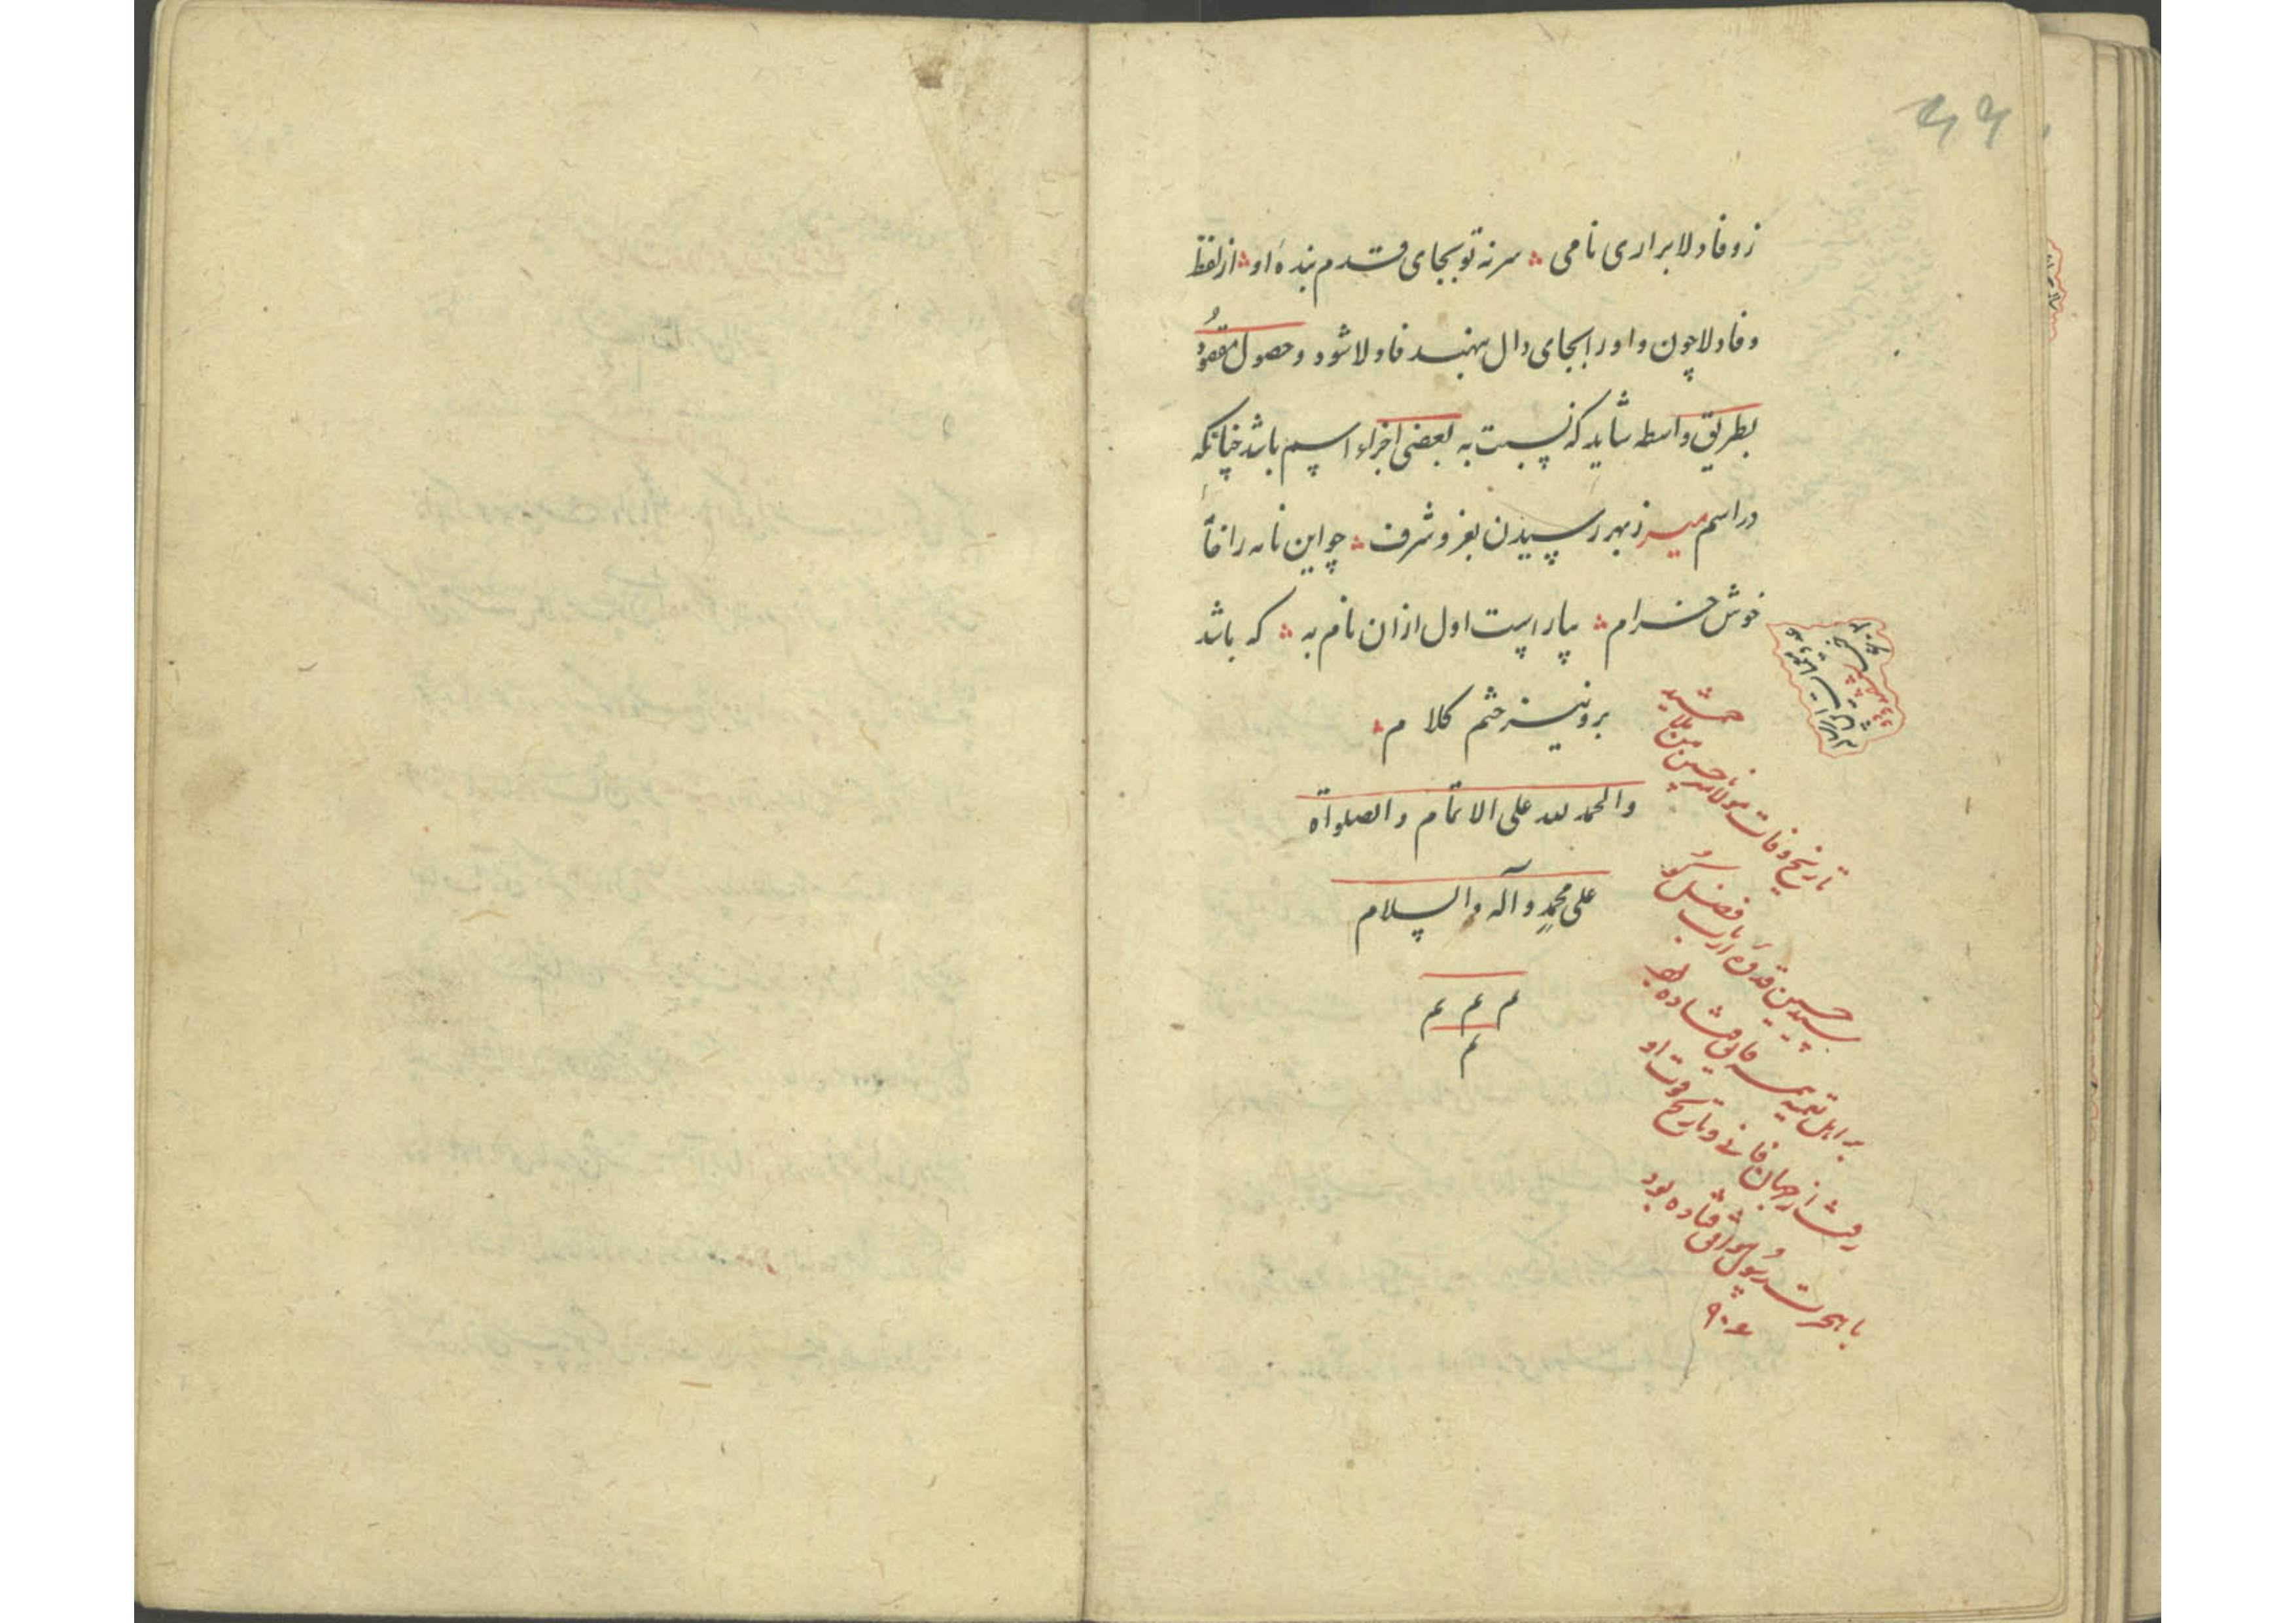 ز وفا و لا برآری نامی ؞ سر نه تو بجای قدم بندهٔ او ؞ از لفظ
وفا و لا چون واو را بجای دال نهند فاولا شود و حصول مقصود
بطریق واسطه شاید که نسبت به بعضی اجزاء اسم باشد چنانکه
در اسم میر ز بهر رسیدن بعز و شرف ؞ چو این نامه را
خوش خرام ؞ بیاراست اول ازان نام به ؞ که باشد
برو نیز ختم کلام ؞
والحمد لله علی الاتمام و الصلواة
علی محمد و آله والسلام
م م م
م
تاریخ وفات مولانا میر حسین
سید حسین قدوهٔ ارباب فضل
بر اهل تعمیه
رفت از جهان فانی و تاریخ فوت او
با هجرت رسول موافق فتاده بود
۹۰۴